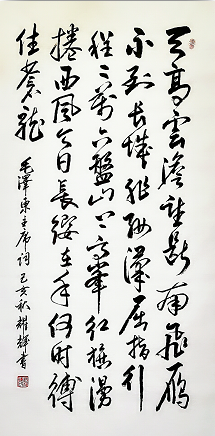 天高雲澹望斷南飛雁
不到長城非好漢屈指行
程二萬六盤山上高峯紅旗漫
捲西風今日長纓在手何時縛
住蒼龍
毛澤東主席詞己亥秋耀輝書